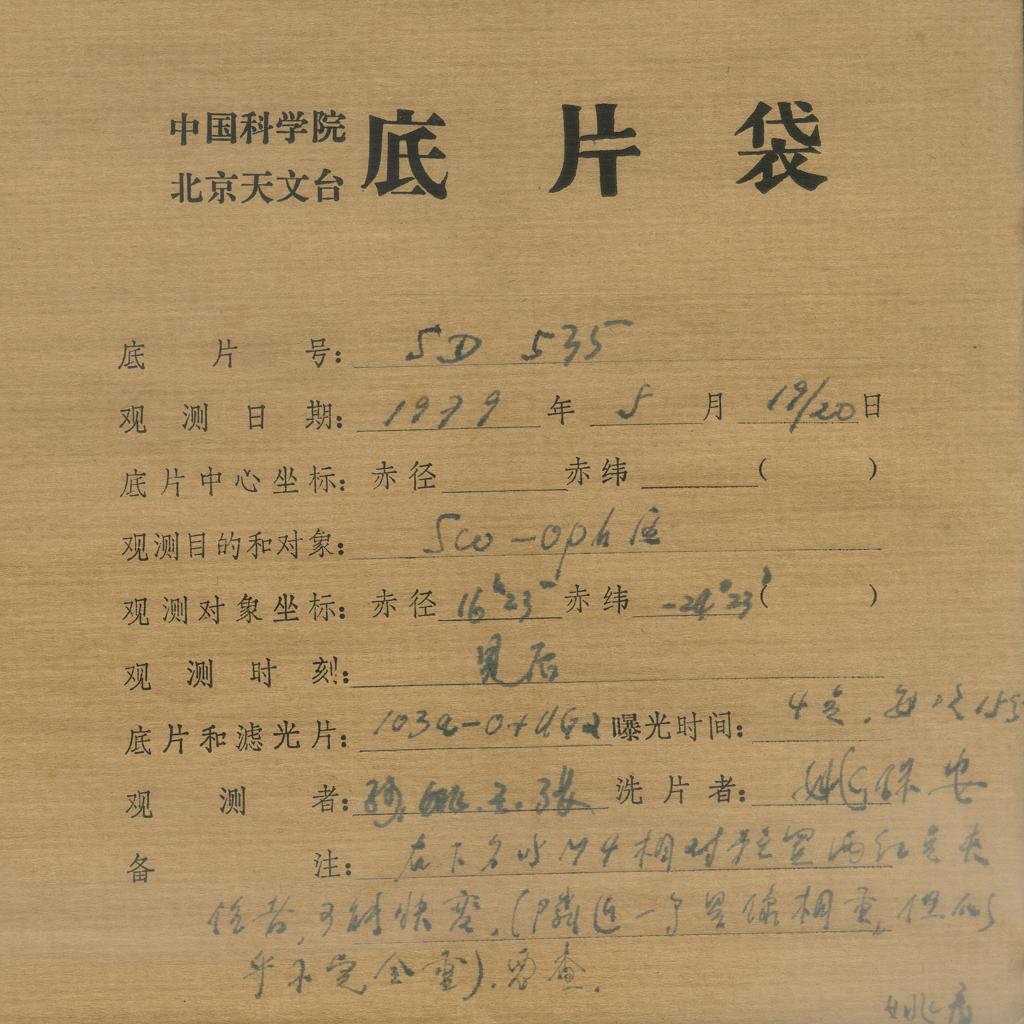 中国科学院
北京天文台
底片袋
底片号: SD 535
观测日期: 1979 年 5 月 19/20 日
底片中心坐标: 赤径 赤纬 ( )
观测目的和对象: Sco-oph 区
观测对象坐标: 赤径 16ʰ23ᵐ 赤纬 -24°23′ ( )
观测时刻: 见后
底片和滤光片: 103a-O+UG2 曝光时间: 4点, 每次15
观测者: 姚.王.张 洗片者: 姚保安
备注: 在下方与M4相对位置两红点夹
住者,可能快变,(隣近一个星像相重,但似
乎不完全重).要查.
姚看